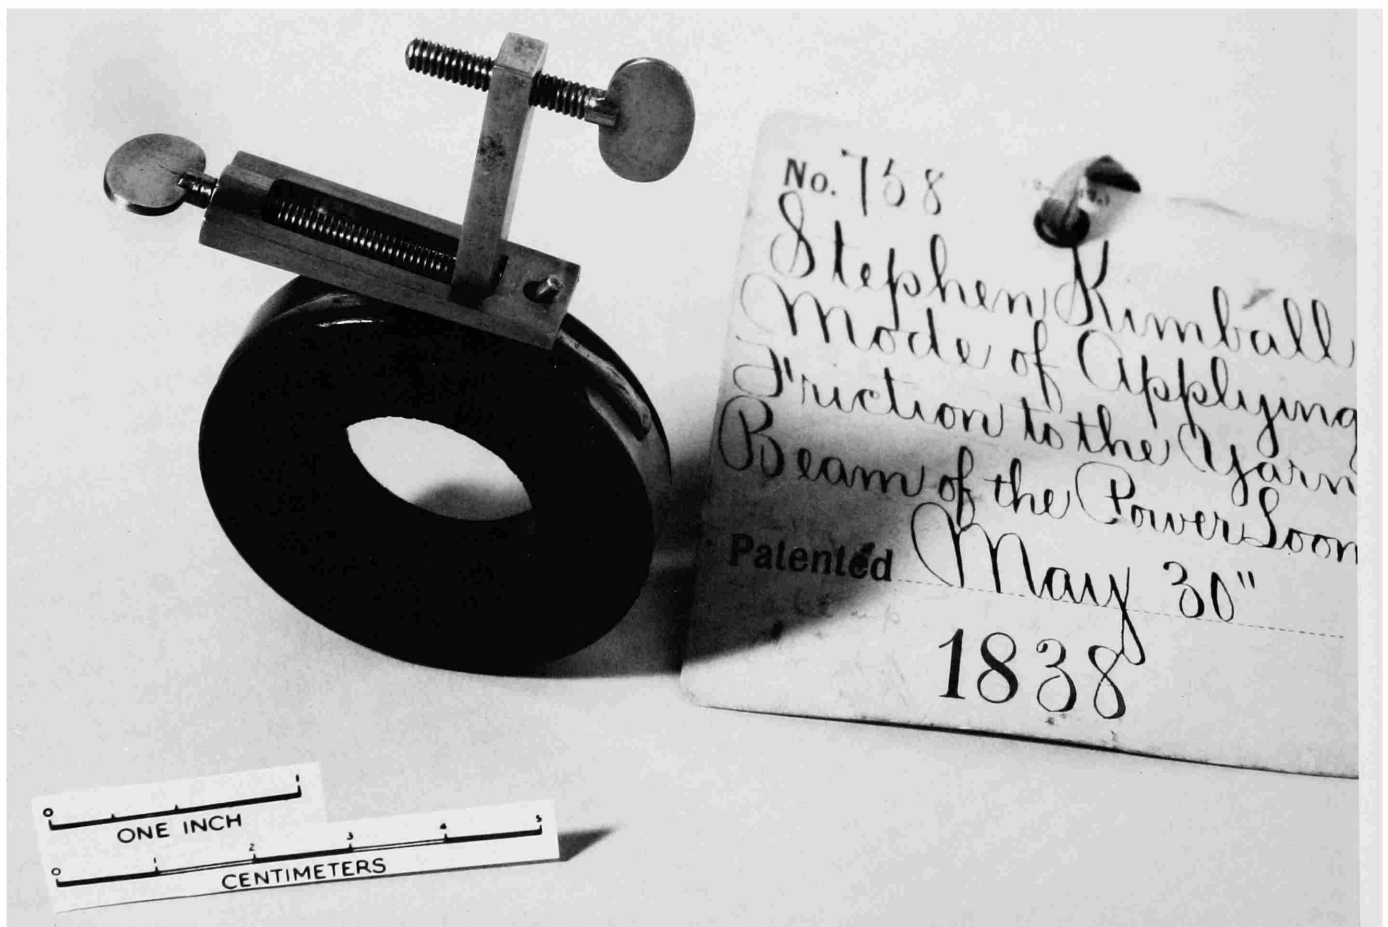 No. 758
Stephen Kimball
Mode of Applying
Friction to the Yarn
Beam of the Power Loom
Patented May 30"
1838
0 1
ONE INCH
0 1 2 3 4 5
CENTIMETERS